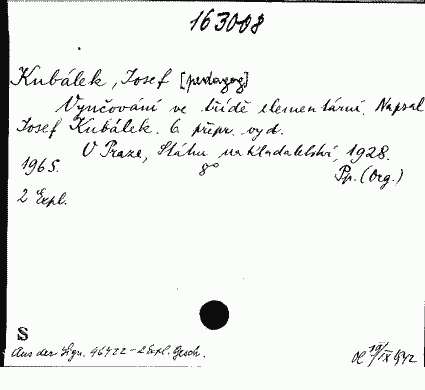 163008
Kubálek, Josef [pedagog]
Vyučování ve třídě elementární. Napsal
Josef Kubálek. 6. přepr. vyd.
V Praze, Státní nakladatelství, 1928.
1965. 8° Pp. (Org.)
2 Expl.
S
Aus der Sign. 46422 - 2 Expl. Gesch.
19/IX 942